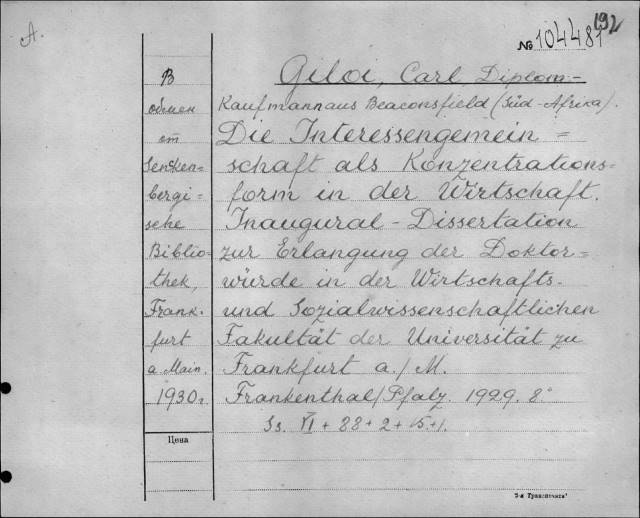 A.
192
№ 104481
В обмен от Senckenbergische Bibliothek, Frankfurt a. Main. 1930г.
Giloi, Carl, Diplom-
Kaufmann aus Beaconsfield (Süd-Afrika).
Die Interessengemein=
schaft als Konzentrations=
form in der Wirtschaft.
Inaugural-Dissertation
zur Erlangung der Doktor=
würde in der Wirtschafts-
und Sozialwissenschaftlichen
Fakultät der Universität zu
Frankfurt a./M.
Frankenthal/Pfalz. 1929. 8°
Ss. VI + 88 + 2 + 15 + 1.
Цена